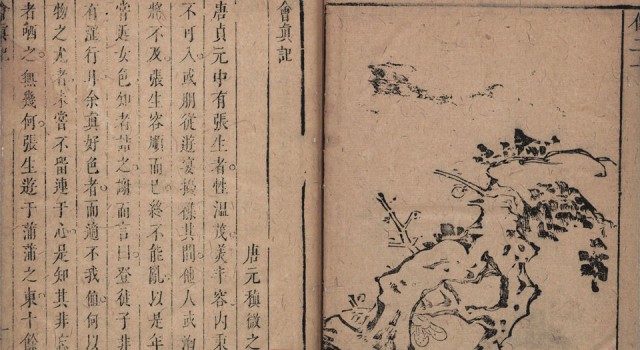 會眞記
唐元稹微之
唐貞元中有張生者性溫茂美丰容內秉
不可入或朋從遊宴擾雜其間他人或洶
將不及張生容順而已終不能亂以是年
嘗近女色知者詰之謝而言曰登徒子非
有淫行耳余眞好色者而適不我値何以
物之尤者未嘗不留連于心是知其非忘
者哂之無幾何張生遊于蒲蒲之東十餘
會眞記